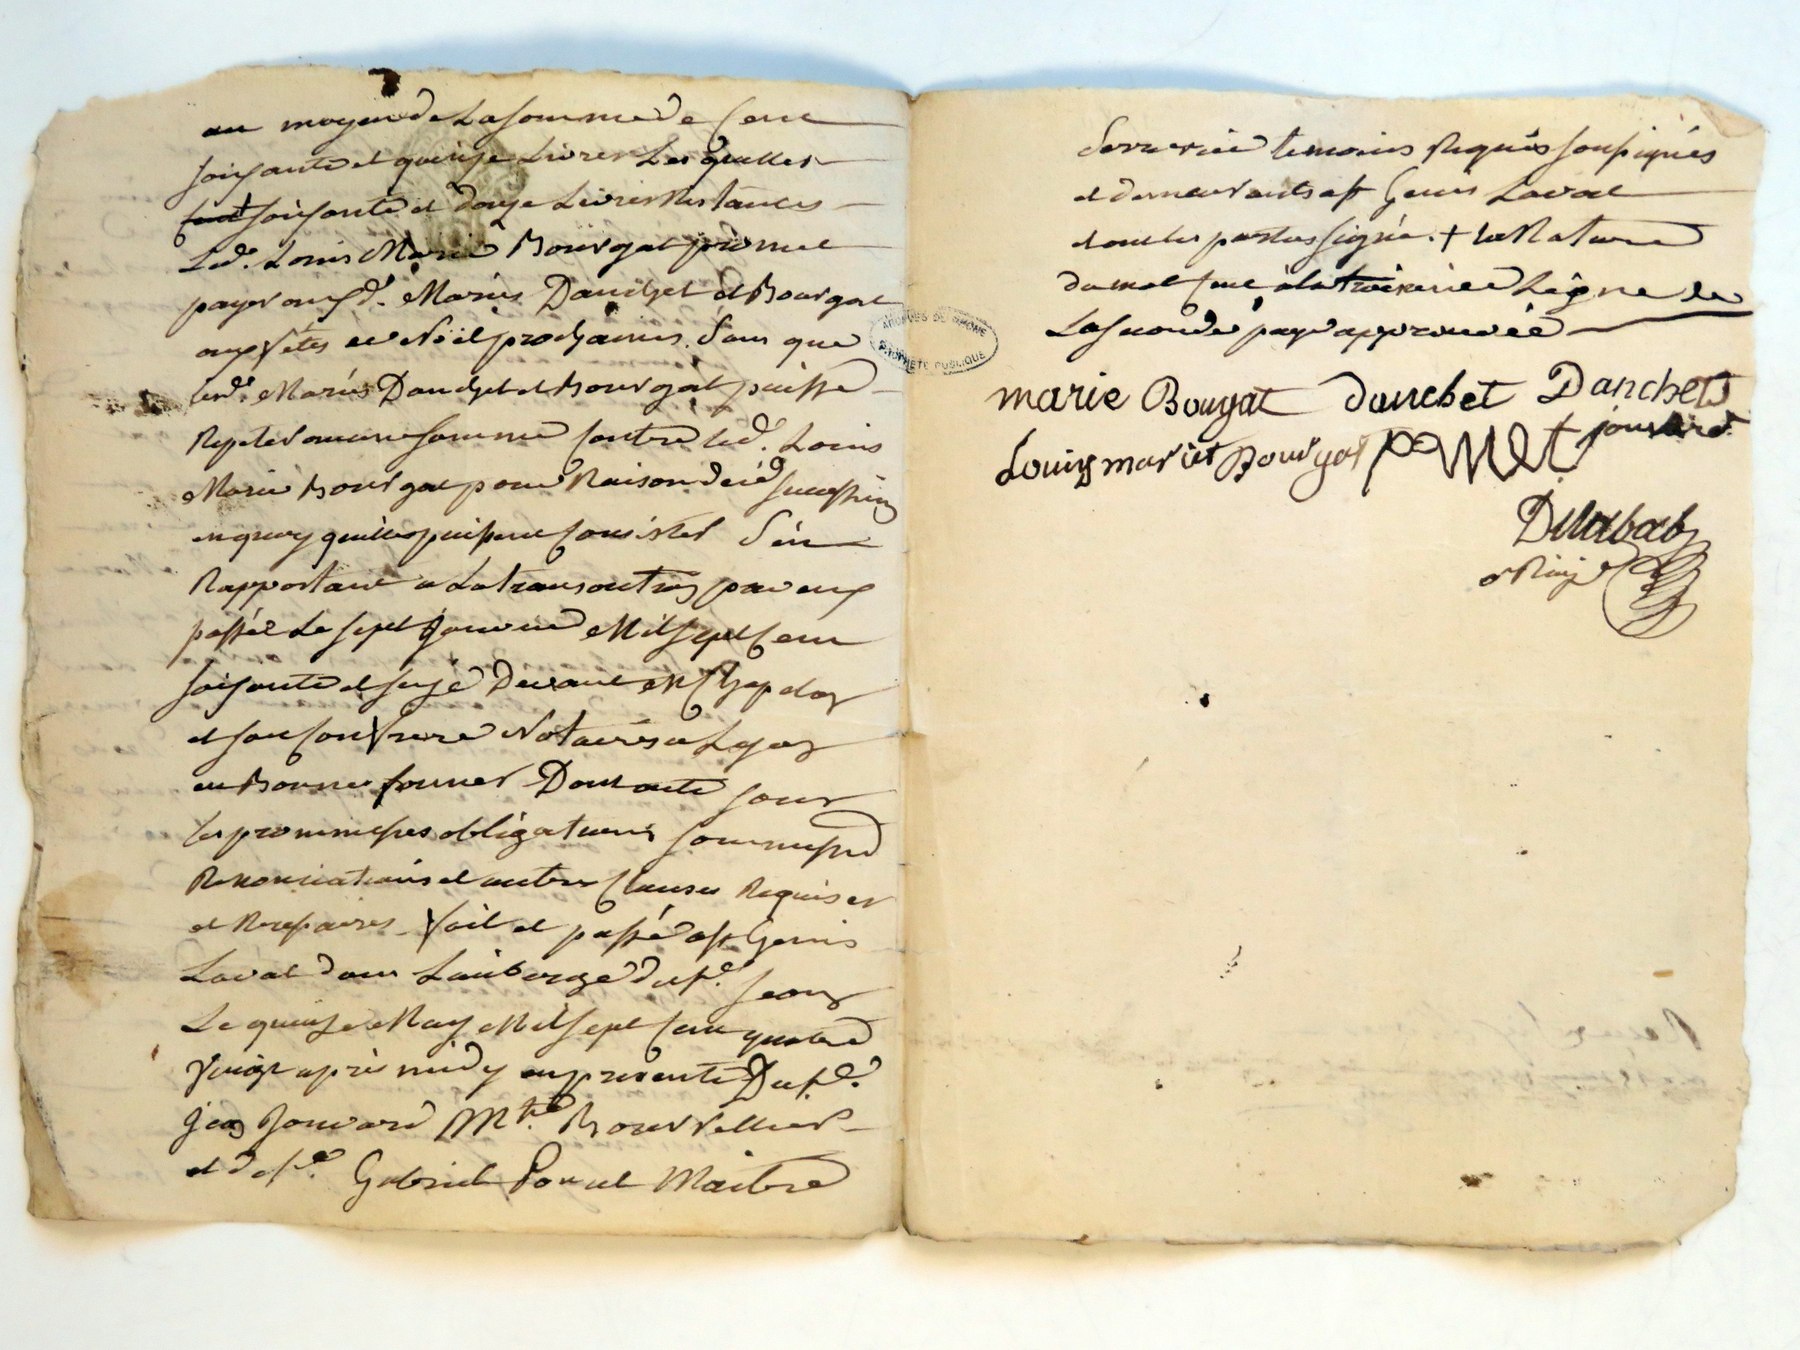 au moyen de La somme de Cent
soixante et quinze Livres Les quelles
cent soixante et douze Livres Restantes
Led. Louis Marie Bourgat promet
payer auxd. Mariés Danchet et Bourgat
aux fêtes de Noël prochaines. Sans que
lesd. Mariés Danchet et Bourgat puisse
Repeter aucune somme Contre led. Louis
Marie Bourgat pour Raison desd. successions
en quoy quelles puissent Consister S'en
Rapportant a La transaction par eux
passée Le sept Janvier Mil sept Cent
soixante et seize Devant Me
et son Confrere Notaires a Lyon
en Bonne forme. Dont acte sous
les promesses obligations soumissions
Renonciations et autres Clauses Requises
et necessaires. fait et passé a st Genis
Laval dans L'auberge du sr. Jean
Le quinze May Mil sept Cent quatre
vingt après midy en presence Du sr.
Jean Jouvard Mtre. Bourrellier
et de sr. Gabriel Poncet Maitre
Serrurier temoins Requis soussignés
et demeurants a st Genis Laval
et ont les parties signé. + La Rature
du mot Cent à la troisieme Ligne de
La seconde page approuvée
ARCHIVES DU RHONE
PROPRIÉTÉ PUBLIQUE
marie Bougat danchet Danchet
Louis mariet Bourgat ponset jouvard
Delorbab